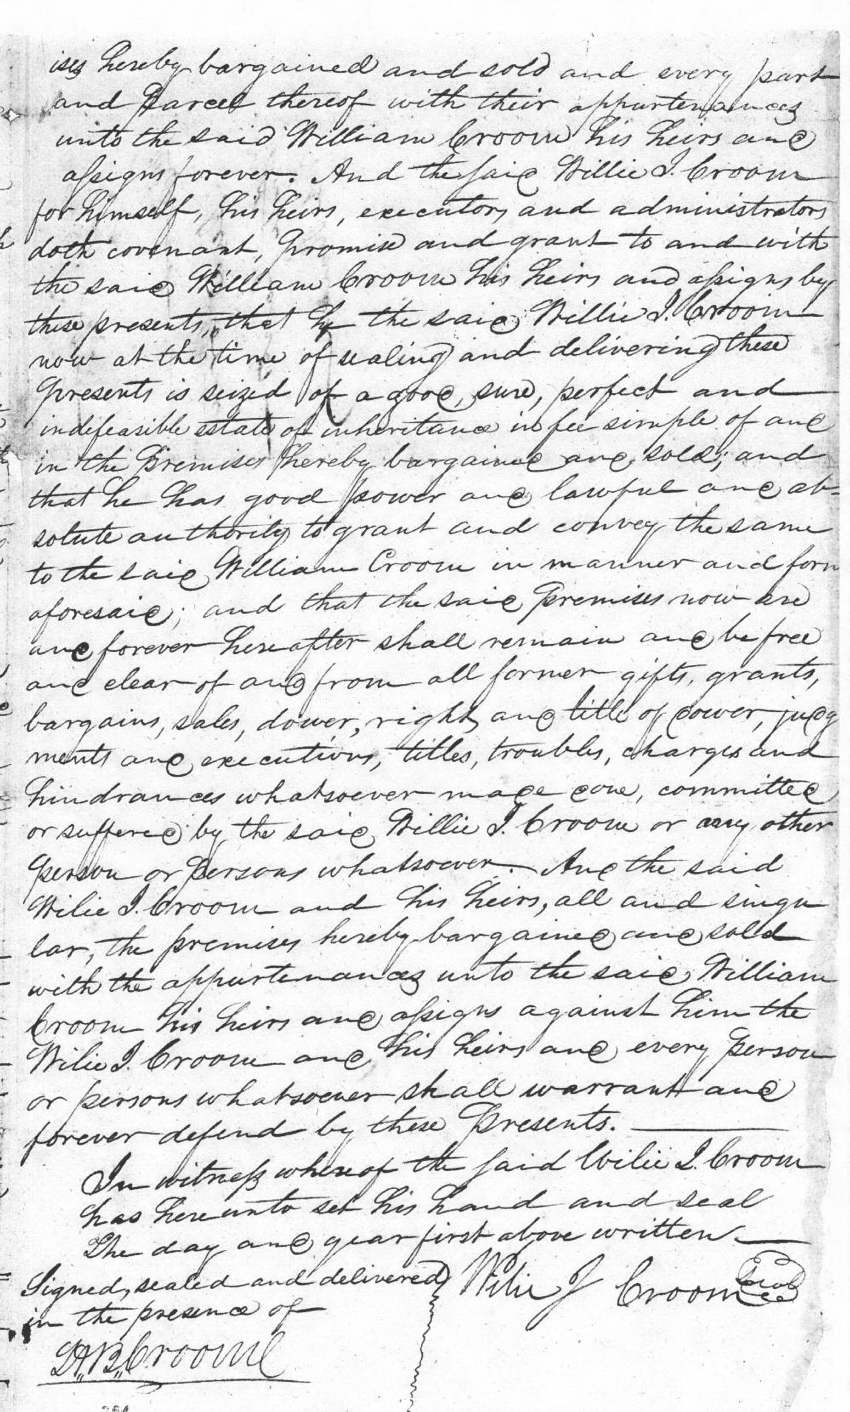 ises hereby bargained and sold and every part
and Parcel thereof with their appurtenances
unto the said William Croom his heirs and
assigns forever. And the said Willie J. Croom
for himself, his heirs, executors and administrators
doth covenant, promise and grant to and with
the said William Croom his heirs and assigns by
these presents, that he the said Willie J. Croom
now at the time of sealing and delivering these
presents is seized of a good, sure, perfect and
indefeasible estate of inheritance in fee simple of and
in the Premises hereby bargained and sold; and
that he has good power and lawful and ab-
solute authority to grant and convey the same
to the said William Croom in manner and form
aforesaid; and that the said Premises now are
and forever hereafter shall remain and be free
and clear of and from all former gifts, grants,
bargains, sales, dower, right and title of dower, judg
ments and executions, titles, troubles, charges and
hindrances whatsoever made done, committed
or suffered by the said Willie J. Croom or any other
Person or Persons whatsoever. And the said
Wilie J. Croom and his heirs, all and singu
lar, the premises hereby bargained and sold
with the appurtenances unto the said William
Croom his heirs and assigns against him the
Wilie J. Croom and his heirs and every Person
or persons whatsoever shall warrant and
forever defend by these Presents.
In witness whereof the said Wilie J. Croom
has hereunto set his hand and seal
The day and year first above written
Signed, sealed and delivered Wilie J Croom Seal
in the presence of
H,, B,, Croom